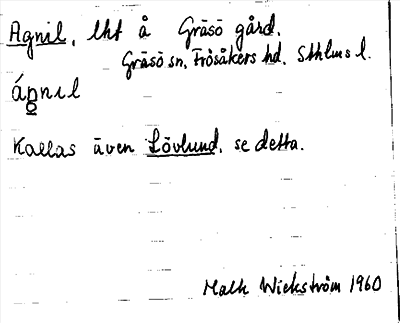 Agnil, lht å Gräsö gård.
Gräsö sn, Frösåkers hd. Sthlms l.
ágnıl
Kallas även Lövlund, se detta.
Malk Wickström 1960